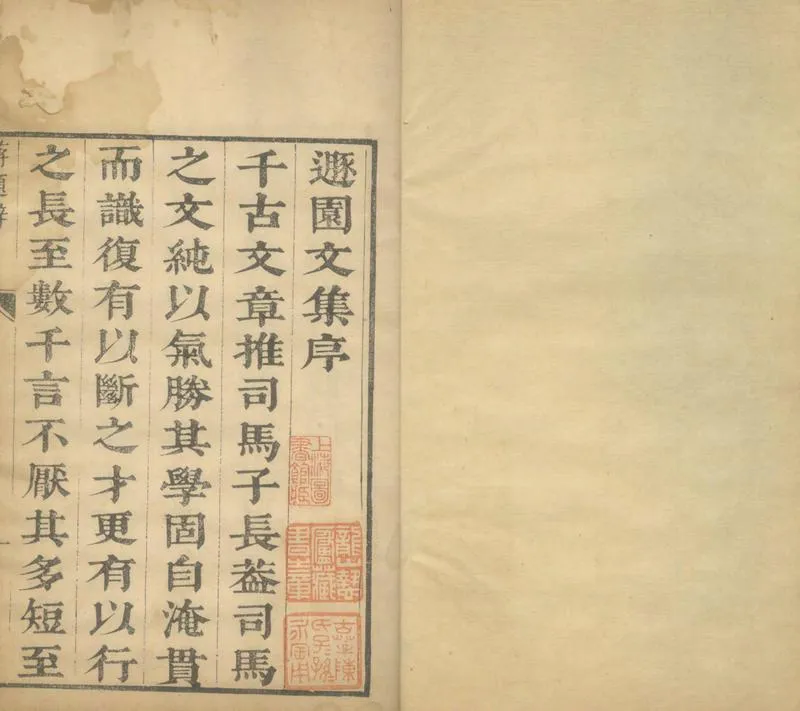 遯園文集序
千古文章推司馬子長葢司馬
之文純以氣勝其學固自淹貫
而識復有以斷之才更有以行
之長至數千言不厭其多短至
上海圖
書館藏
廬藏
書章
古莘陳
氏子孫
永寶用